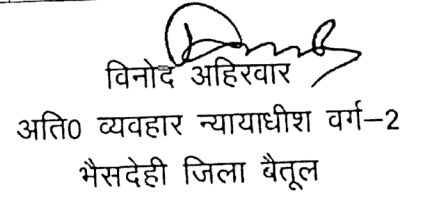 विनोद अहिरवार
अति0 व्यवहार न्यायाधीश वर्ग–2
भैसदेही जिला बैतूल